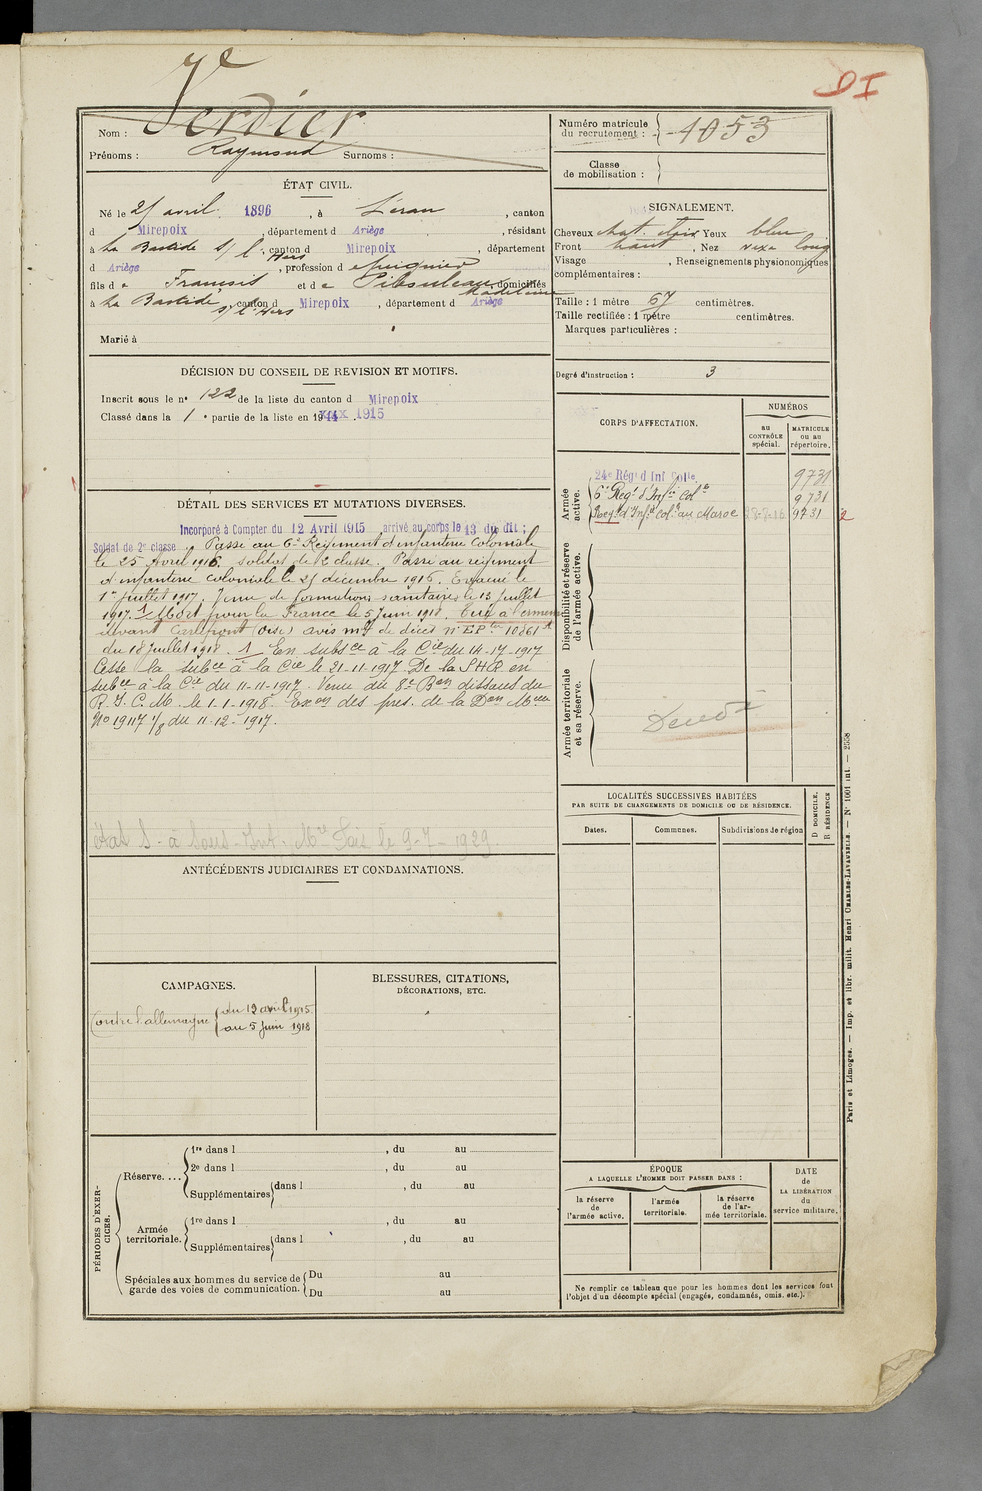 DI
Nom : Verdier
Prénoms : Raymond Surnoms :
Numéro matricule
du recrutement : 1053
Classe
de mobilisation :
ÉTAT CIVIL.
Né le 21 avril 1896, à Léran, canton
d Mirepoix, département d Ariège, résidant
à La Bastide s/ l'Hers, canton d Mirepoix, département
d Ariège, profession d
fils de François et de Pibouleau Madeleine, domiciliés
à La Bastide s/ l'Hers, canton d Mirepoix, département d Ariège
Marié à
SIGNALEMENT.
Cheveux chat. Yeux bleu
Front haut, Nez long
Visage , Renseignements physionomiques
complémentaires :
Taille : 1 mètre 67 centimètres.
Taille rectifiée : 1 mètre centimètres.
Marques particulières :
Degré d'instruction : 3
DÉCISION DU CONSEIL DE REVISION ET MOTIFS.
Inscrit sous le n° 122 de la liste du canton d Mirepoix
Classé dans la 1e partie de la liste en 1914 xxx 1915
CORPS D'AFFECTATION.
NUMÉROS
au
CONTRÔLE
spécial.
MATRICULE
ou au
répertoire.
Armée
active.
24e Régt d'Inf Colle 9731
6e Regt d'Infie Colle 9731
Regt d'Infie Colle au Maroc 9731
Disponibilité et réserve
de l'armée active.
Armée territoriale
et sa réserve.
DÉTAIL DES SERVICES ET MUTATIONS DIVERSES.
Incorporé à Compter du 12 Avril 1915 arrivé au corps le 13 du dit ;
Soldat de 2e classe. Passé au 6e Régiment d'infanterie coloniale
le 25 Avril 1916. Soldat de 2 classe. Passé au régiment
d'infanterie coloniale le 21 décembre 1916. Evacué le
1er juillet 1917. Venu de formations sanitaires le 13 juillet
1917. 1 Mort pour la France le 5 Juin 1918. Tué à l'ennemi
devant Carlepont (Oise) avis mle de décès n° EPte 10361
du 18 juillet 1918. 1 En subsce à la Cie du 14-17-1917
Cesse la subce à la Cie le 21-11-1917. De la SHR en
subce à la Cie du 11-11-1917. Venu du 8e Bon dissous du
R.I.C.M. le 1.1.1918. Exon des pres. de la Don Mlle
No 19117 1/8 du 11-12-1917.
le 9-7-1929
ANTÉCÉDENTS JUDICIAIRES ET CONDAMNATIONS.
LOCALITÉS SUCCESSIVES HABITÉES
PAR SUITE DE CHANGEMENTS DE DOMICILE OU DE RÉSIDENCE.
Dates. Communes. Subdivisions de région
D DOMICILE.
R RÉSIDENCE
CAMPAGNES.
Contre l'allemagne du 12 avril 1915
au 5 juin 1918
BLESSURES, CITATIONS,
DÉCORATIONS, ETC.
PÉRIODES D'EXER-
CICES.
Réserve....
1re dans l , du au
2e dans l , du au
Supplémentaires dans l , du au
Armée
territoriale.
1re dans l , du au
Supplémentaires dans l , du au
Spéciales aux hommes du service de
garde des voies de communication.
Du au
Du au
ÉPOQUE
A LAQUELLE L'HOMME DOIT PASSER DANS :
la réserve
de
l'armée active.
l'armée
territoriale.
la réserve
de l'ar-
mée territoriale.
DATE
de
LA LIBÉRATION
du
service militaire.
Ne remplir ce tableau que pour les hommes dont les services font
l'objet d'un décompte spécial (engagés, condamnés, omis, etc.).
Paris et Limoges. — Imp. et libr. milit. Henri CHARLES-LAVAUZELLE. — N° 1001 int. — 2558